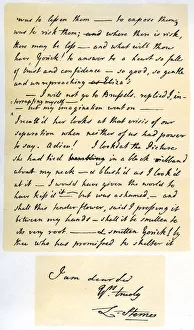 was to lessen them — to expose them,
was to risk them; and where there is risk,
there may be loss — and what will thou
have, Yorick! to answer to a heart so full
of trust and confidence — so good, so gentle
and unreproaching as Eliza's
— I will not go to Brussels, replied I, in-
terrupting myself
— but my imagination went on —
I recall'd her looks at that crisis of our
separation when neither of us had power
to say Adieu! I look'd at the Picture
she had tied in a black ribband
about my neck — & blush'd as I look'd
at it — I would have given the world to
have kiss'd it — but was ashamed — and
shall this tender flower, said I, pressing it
between my hands — shall it be smitten to
its very root — & smitten Yorick! by
thee who has promised to shelter it
I am dear Sir
Yrs truely
L. Sterne